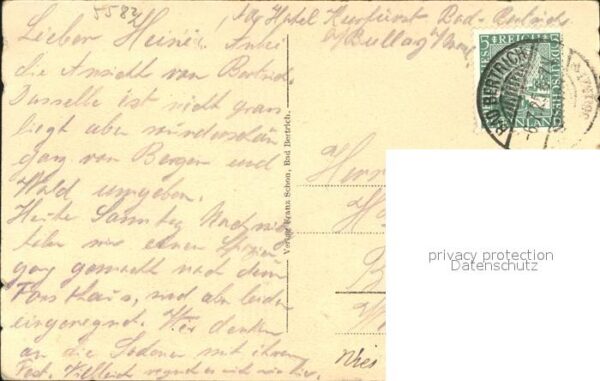 5582
Hotel Kurfürst Bad-Bertrich
b/Bullay
Lieber Heini! Anbei
die Ansicht von Bertrich
Dasselbe ist nicht gross
liegt aber wunderschön
ganz von Bergen und
Wald umgeben.
Heute Sonntag Nachmit
haben wir einen Spazier
gang gemacht nach dem
Forsthaus, und aber leider
eingeregnet. Wir denken
an die Sodener mit ihrem
Fest. Vielleich regnet es nicht wie hier.
Verlag Franz Schon, Bad Bertrich.
5 DEUTSCHES REICH 5
BAD BERTRICH
Herrn
H
B
W
Wies
privacy protection
Datenschutz